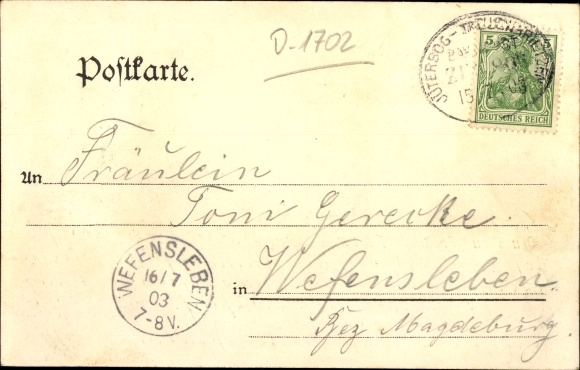 D-1702
JÜTERBOG - TREUENBRIETZEN
5 5
DEUTSCHES REICH
Postkarte.
An Fräulein
Toni Gerecke.
in Wefensleben.
Bez Magdeburg.
WEFENSLEBEN
16/7
03
7-8V.